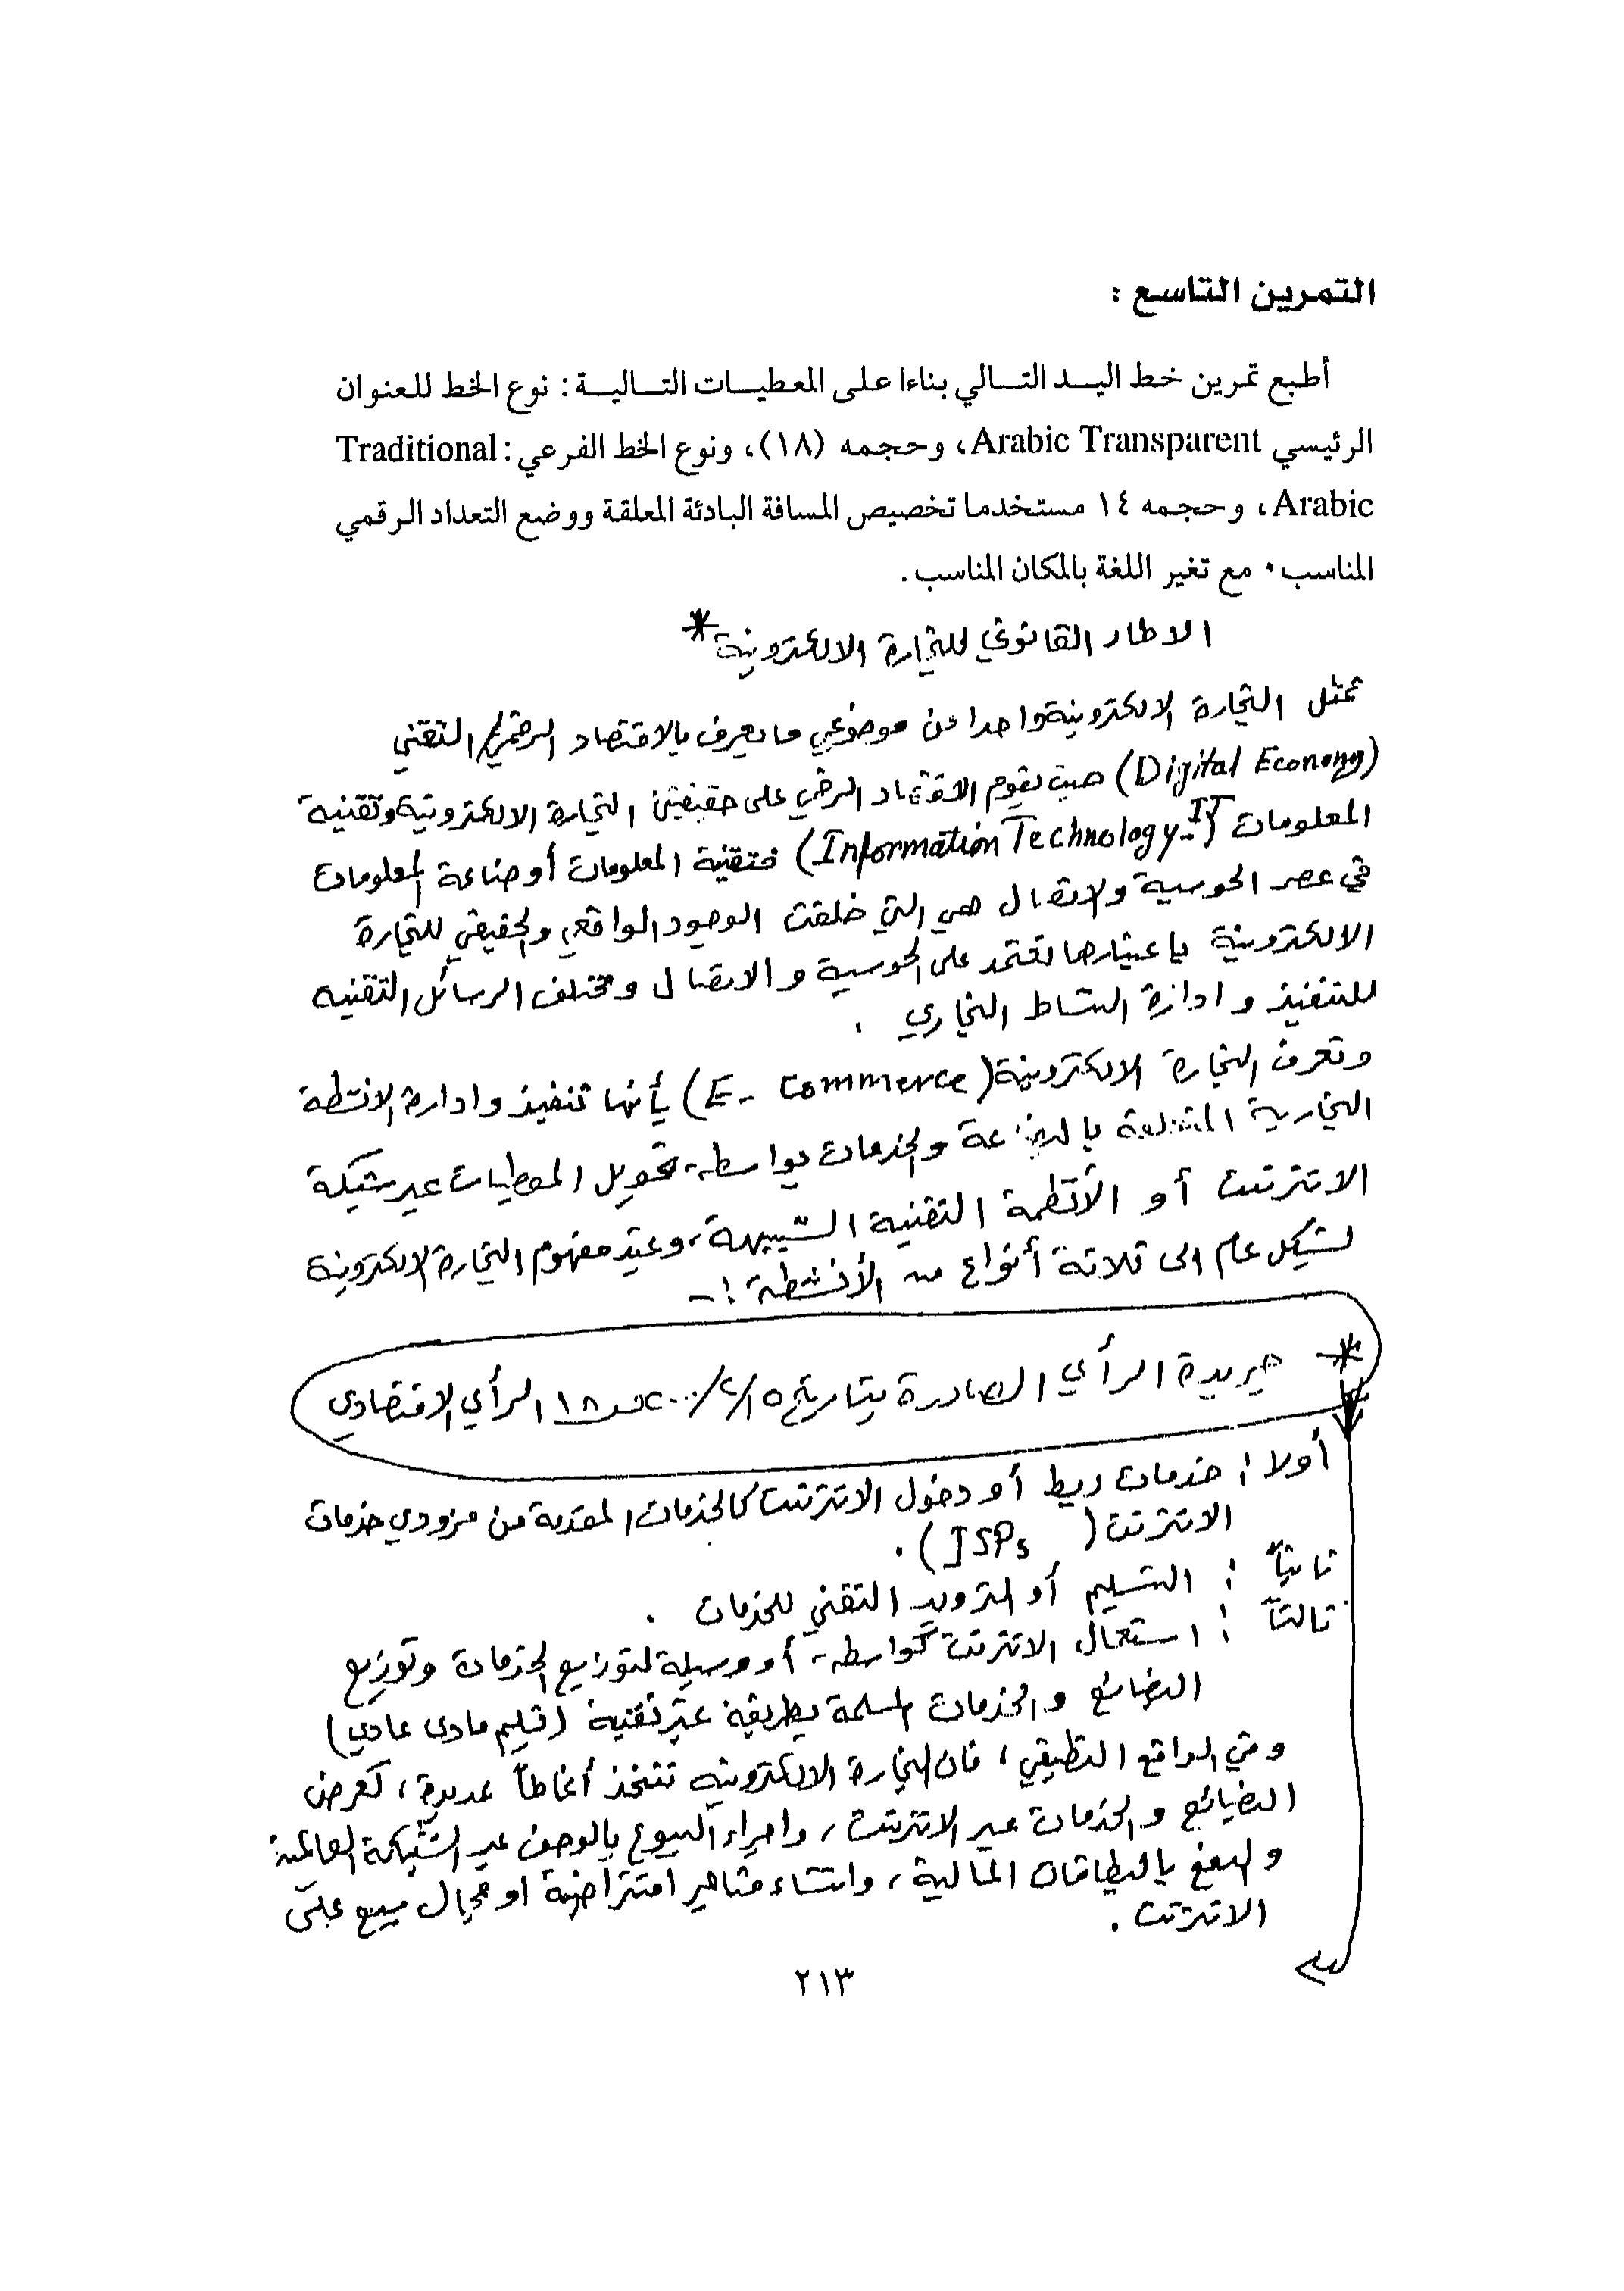 التمرين التاسع :
أطبع تمرين خط اليد التالي بناءا على المعطيات التالية : نوع الخط للعنوان
الرئيسي Arabic Transparent ، وحجمه (١٨)، ونوع الخط الفرعي : Traditional
Arabic ، وحجمه ١٤ مستخدما تخصيص المسافة البادئة المعلقة ووضع التعداد الرقمي
المناسب . مع تغير اللغة بالمكان المناسب .
الاطار القانوني للتجارة الالكترونية *
تمثل التجارة الالكترونية واحدا من موضوعي ما يعرف بالاقتصاد الرقمي / التقني
(Digital Economy) حيث يقوم الاقتصاد الرقمي على حقيقتين التجارة الالكترونية وتقنية
المعلومات (Information Technology-IT) فتقنية المعلومات أو صناعة المعلومات
في عصر الحوسبة والاتصال هي التي خلقت الوجود الواقعي والحقيقي للتجارة
الالكترونية باعتبارها تعتمد على الحوسبة والاتصال ومختلف الوسائل التقنية
للتنفيذ وادارة النشاط التجاري .
وتعرف التجارة الالكترونية (E- Commerce) بأنها تنفيذ وادارة الانشطة
التجارية المتعلقة بالبضاعة والخدمات بواسطة تحويل المعطيات عبر شبكة
الانترنت أو الأنظمة التقنية الشبيهة، ويمتد مفهوم التجارة الالكترونية
بشكل عام الى ثلاثة أنواع من الأنشطة :-
* جريدة الرأي الصادرة بتاريخ ١٥/٢/٢٠٠٠ ص ١٨ الرأي الاقتصادي
أولا : خدمات ربط أو دخول الانترنت كالخدمات المقدمة من مزودي خدمات
الانترنت ( ISPs ) .
ثانياً : التسليم أو التزويد التقني للخدمات .
ثالثاً : استعمال الانترنت كواسطة أو وسيلة لتوزيع الخدمات وتوزيع
البضائع والخدمات المسلمة بطريقة غير تقنية (تسليم مادي عادي)
وفي الواقع التطبيقي ، فان التجارة الالكترونية تتخذ أنماطاً عديدة ، كعرض
البضائع والخدمات عبر الانترنت ، واجراء البيوع بالوصف عبر الشبكة العالمية
والدفع بالبطاقات المالية ، وانشاء متاجر افتراضية او محال بيع على
الانترنت .
٢١٣